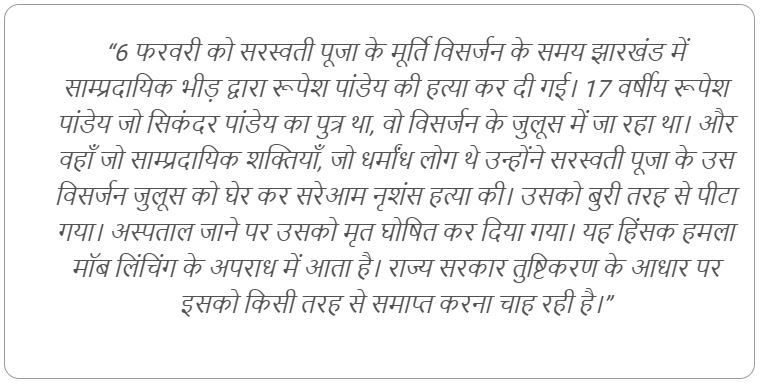 “6 फरवरी को सरस्वती पूजा के मूर्ति विसर्जन के समय झारखंड में
साम्प्रदायिक भीड़ द्वारा रूपेश पांडेय की हत्या कर दी गई। 17 वर्षीय रूपेश
पांडेय जो सिकंदर पांडेय का पुत्र था, वो विसर्जन के जुलूस में जा रहा था। और
वहाँ जो साम्प्रदायिक शक्तियाँ, जो धर्मांध लोग थे उन्होंने सरस्वती पूजा के उस
विसर्जन जुलूस को घेर कर सरेआम नृशंस हत्या की। उसको बुरी तरह से पीटा
गया। अस्पताल जाने पर उसको मृत घोषित कर दिया गया। यह हिंसक हमला
मॉब लिंचिंग के अपराध में आता है। राज्य सरकार तुष्टिकरण के आधार पर
इसको किसी तरह से समाप्त करना चाह रही है।”